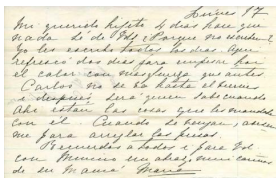 Lunes 17
Mi querido hijito 4 dias hace que
nada sé de Vds ¿Porque no escriben?
Yo les escribo todos los dias Aquí
refrescó dos dias para empezar hoy
el calor con mas fuerza que antes
Carlos no se va hasta el jueves
i después será quien sabe cuando
Ahí estan las cosas que les mandé
con él Cuando se vengan,
me para arreglar las piezas.
Recuerdos a todos i para Vd
con Mimino un abrazo, mui cariñoso
de su Mamá María